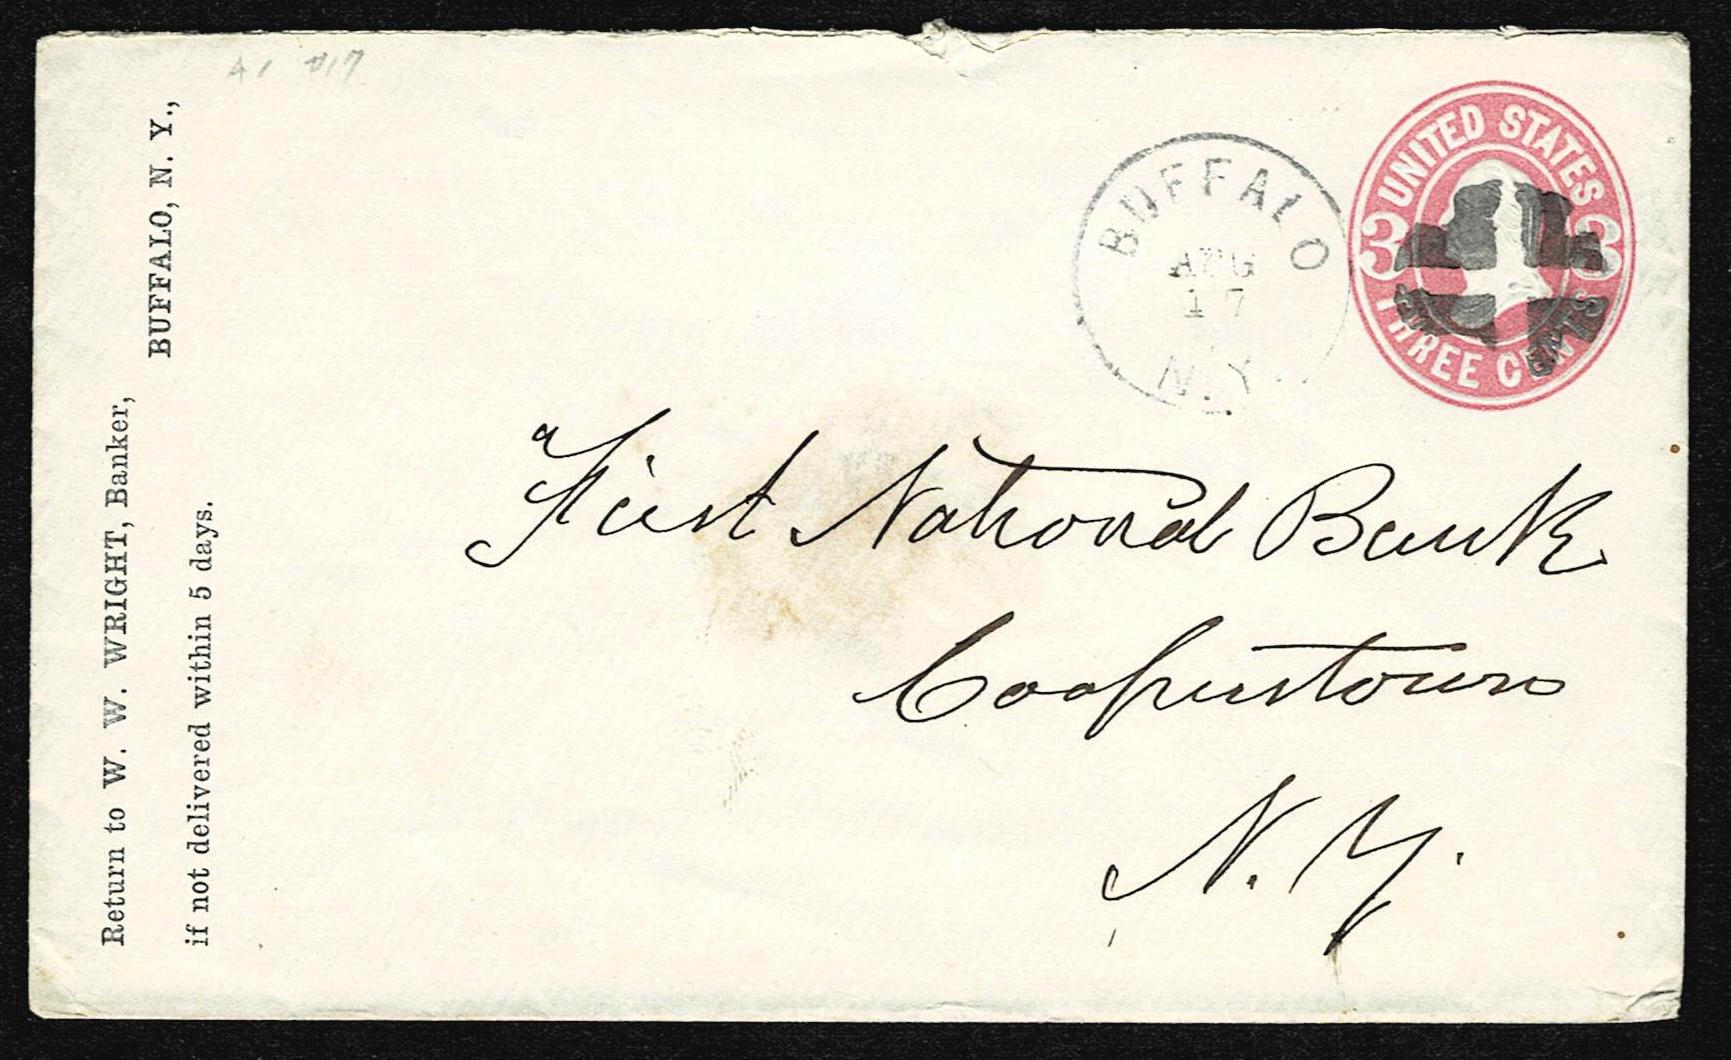 Return to W. W. WRIGHT, Banker,
BUFFALO, N. Y.,
if not delivered within 5 days.
BUFFALO
AUG
17
N.Y.
UNITED STATES
3 3
THREE CENTS
First National Bank
Cooperstown
N. Y.